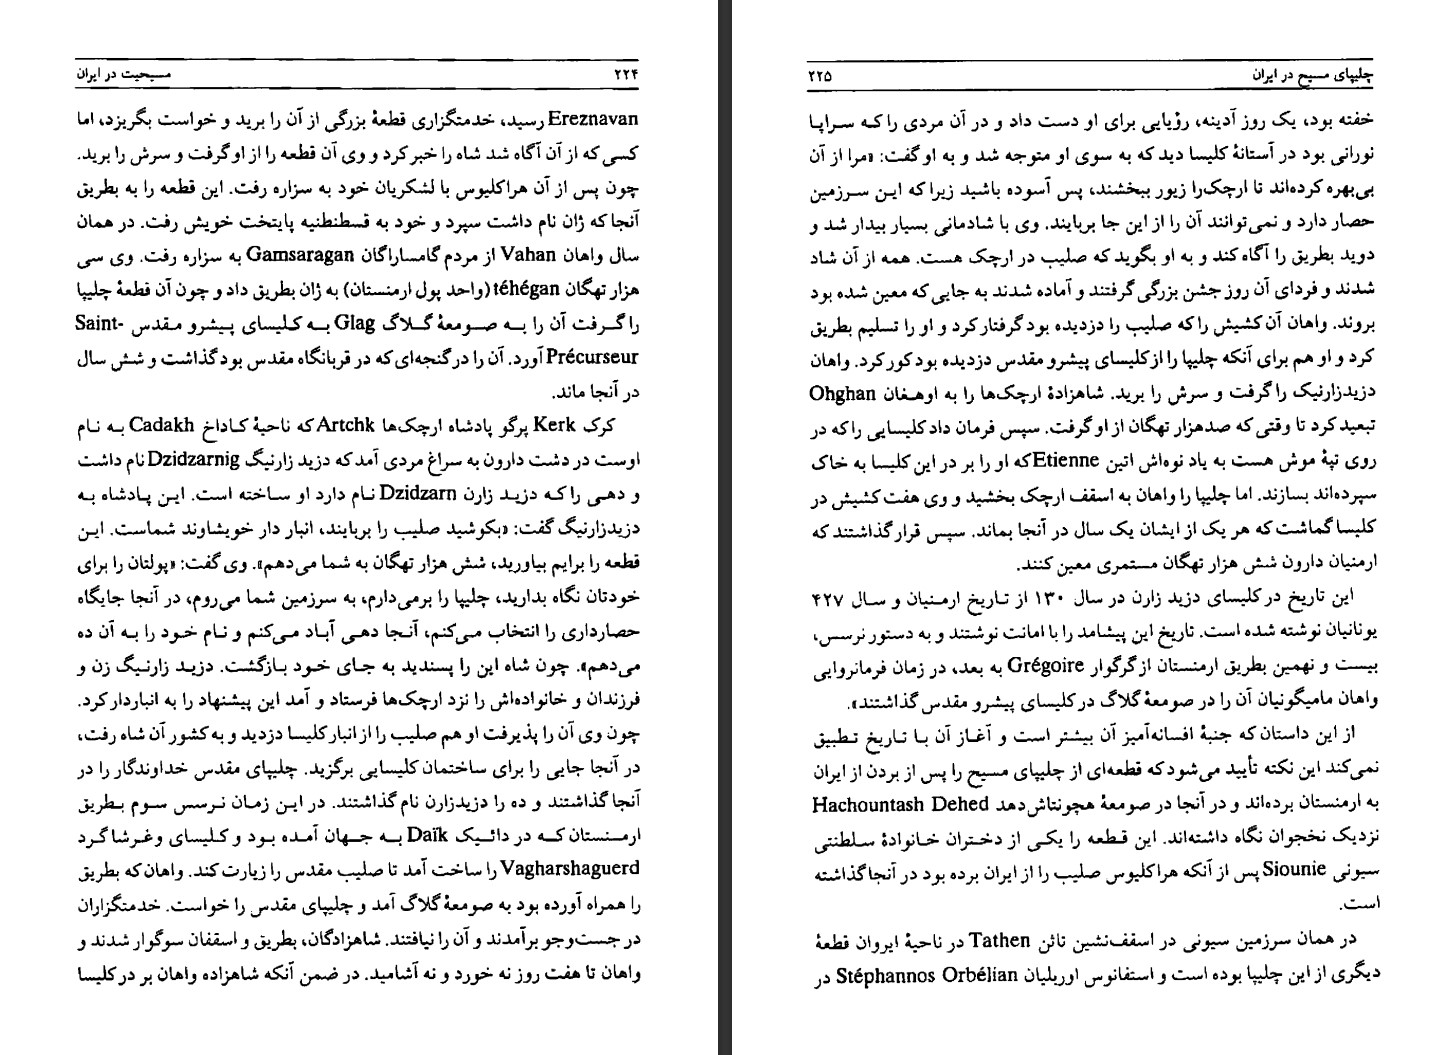 ۲۲۴ مسیحیت در ایران
Ereznavan رسید، خدمتگزاری قطعهٔ بزرگی از آن را برید و خواست بگریزد، اما
کسی که از آن آگاه شد شاه را خبر کرد و وی آن قطعه را از او گرفت و سرش را برید.
چون پس از آن هراکلیوس با لشکریان خود به سزاره رفت. این قطعه را به بطریق
آنجا که ژان نام داشت سپرد و خود به قسطنطنیه پایتخت خویش رفت. در همان
سال واهان Vahan از مردم گامساراگان Gamsaragan به سزاره رفت. وی سی
هزار تهگان téhégan (واحد پول ارمنستان) به ژان بطریق داد و چون آن قطعهٔ چلیپا
را گرفت آن را به صومعهٔ گلاگ Glag به کلیسای پیشرو مقدس Saint-
Précurseur آورد. آن را در گنجه‌ای که در قربانگاه مقدس بود گذاشت و شش سال
در آنجا ماند.
کرک Kerk پرگو پادشاه ارچک‌ها Artchk که ناحیهٔ کاداخ Cadakh به نام
اوست در دشت دارون به سراغ مردی آمد که دزید زارنیگ Dzidzarnig نام داشت
و دهی را که دزید زارن Dzidzarn نام دارد او ساخته است. این پادشاه به
دزیدزارنیگ گفت: «بکوشید صلیب را بربایند، انبار دار خویشاوند شماست. این
قطعه را برایم بیاورید، شش هزار تهگان به شما می‌دهم». وی گفت: «پولتان را برای
خودتان نگاه بدارید، چلیپا را برمی‌دارم، به سرزمین شما می‌روم، در آنجا جایگاه
حصارداری را انتخاب می‌کنم، آنجا دهی آباد می‌کنم و نام خود را به آن ده
می‌دهم». چون شاه این را پسندید به جای خود بازگشت. دزید زارنیگ زن و
فرزندان و خانواده‌اش را نزد ارچک‌ها فرستاد و آمد این پیشنهاد را به انباردار کرد.
چون وی آن را پذیرفت او هم صلیب را از انبار کلیسا دزدید و به کشور آن شاه رفت،
در آنجا جایی را برای ساختمان کلیسایی برگزید. چلیپای مقدس خداوندگار را در
آنجا گذاشتند و ده را دزیدزارن نام گذاشتند. در این زمان نرسس سوم بطریق
ارمنستان که در دائیک Daïk به جهان آمده بود و کلیسای وغرشاگرد
Vagharshaguerd را ساخت آمد تا صلیب مقدس را زیارت کند. واهان که بطریق
را همراه آورده بود به صومعهٔ گلاگ آمد و چلیپای مقدس را خواست. خدمتگزاران
در جست‌وجو برآمدند و آن را نیافتند. شاهزادگان، بطریق و اسقفان سوگوار شدند و
واهان تا هفت روز نه خورد و نه آشامید. در ضمن آنکه شاهزاده واهان بر در کلیسا
چلیپای مسیح در ایران ۲۲۵
خفته بود، یک روز آدینه، رؤیایی برای او دست داد و در آن مردی را که سراپا
نورانی بود در آستانهٔ کلیسا دید که به سوی او متوجه شد و به او گفت: «مرا از آن
بی‌بهره کرده‌اند تا ارچک را زیور ببخشند، پس آسوده باشید زیرا که این سرزمین
حصار دارد و نمی‌توانند آن را از این جا بربایند. وی با شادمانی بسیار بیدار شد و
دوید بطریق را آگاه کند و به او بگوید که صلیب در ارچک هست. همه از آن شاد
شدند و فردای آن روز جشن بزرگی گرفتند و آماده شدند به جایی که معین شده بود
بروند. واهان آن کشیش را که صلیب را دزدیده بود گرفتار کرد و او را تسلیم بطریق
کرد و او هم برای آنکه چلیپا را از کلیسای پیشرو مقدس دزدیده بود کور کرد. واهان
دزیدزارنیک را گرفت و سرش را برید. شاهزادهٔ ارچک‌ها را به اوهغان Ohghan
تبعید کرد تا وقتی که صدهزار تهگان از او گرفت. سپس فرمان داد کلیسایی را که در
روی تپهٔ موش هست به یاد نوه‌اش اتین Etienne که او را بر در این کلیسا به خاک
سپرده‌اند بسازند. اما چلیپا را واهان به اسقف ارچک بخشید و وی هفت کشیش در
کلیسا گماشت که هر یک از ایشان یک سال در آنجا بماند. سپس قرار گذاشتند که
ارمنیان دارون شش هزار تهگان مستمری معین کنند.
این تاریخ در کلیسای دزید زارن در سال ۱۳۰ از تاریخ ارمنیان و سال ۴۲۷
یونانیان نوشته شده است. تاریخ این پیشامد را با امانت نوشتند و به دستور نرسس،
بیست و نهمین بطریق ارمنستان از گرگوار Grégoire به بعد، در زمان فرمانروایی
واهان مامیگونیان آن را در صومعهٔ گلاگ در کلیسای پیشرو مقدس گذاشتند».
از این داستان که جنبهٔ افسانه‌آمیز آن بیشتر است و آغاز آن با تاریخ تطبیق
نمی‌کند این نکته تأیید می‌شود که قطعه‌ای از چلیپای مسیح را پس از بردن از ایران
به ارمنستان برده‌اند و در آنجا در صومعهٔ هچونتاش‌دهد Hachountash Dehed
نزدیک نخجوان نگاه داشته‌اند. این قطعه را یکی از دختران خانوادهٔ سلطنتی
سیونی Siounie پس از آنکه هراکلیوس صلیب را از ایران برده بود در آنجا گذاشته
است.
در همان سرزمین سیونی در اسقف‌نشین تائن Tathen در ناحیهٔ ایروان قطعهٔ
دیگری از این چلیپا بوده است و استفانوس اوربلیان Stéphannos Orbélian در